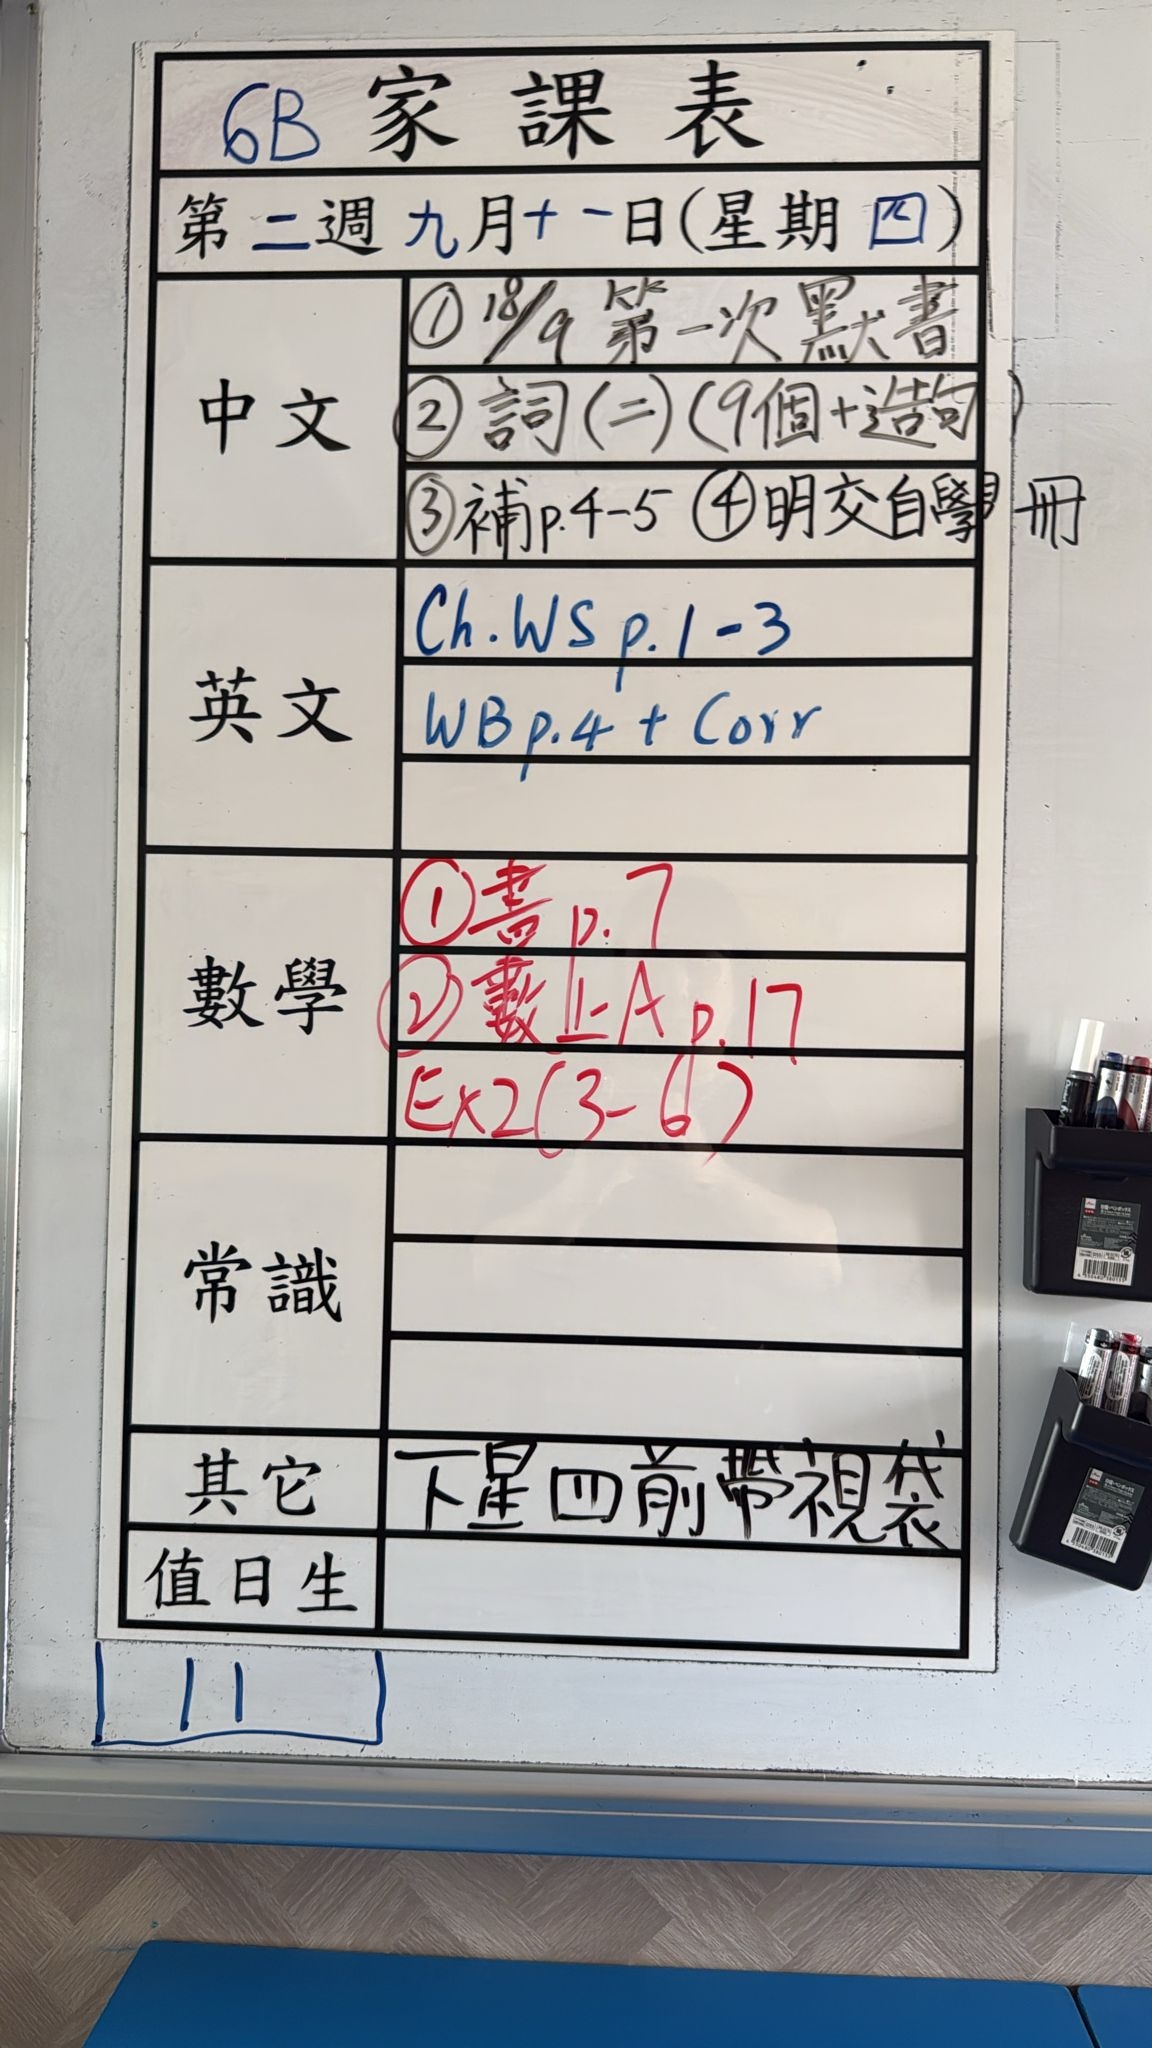 6B 家課表
第二週 九月十一日(星期四)
中文
① 18/9 第一次默書
② 詞(二)(9個+造句)
③補p.4-5 ④明交自學冊
英文
Ch.WS p.1-3
WB p.4 + Corr
數學
①書 p.7
②數上A p.17
Ex2(3-6)
常識
其它
下星四前帶視袋
值日生
11